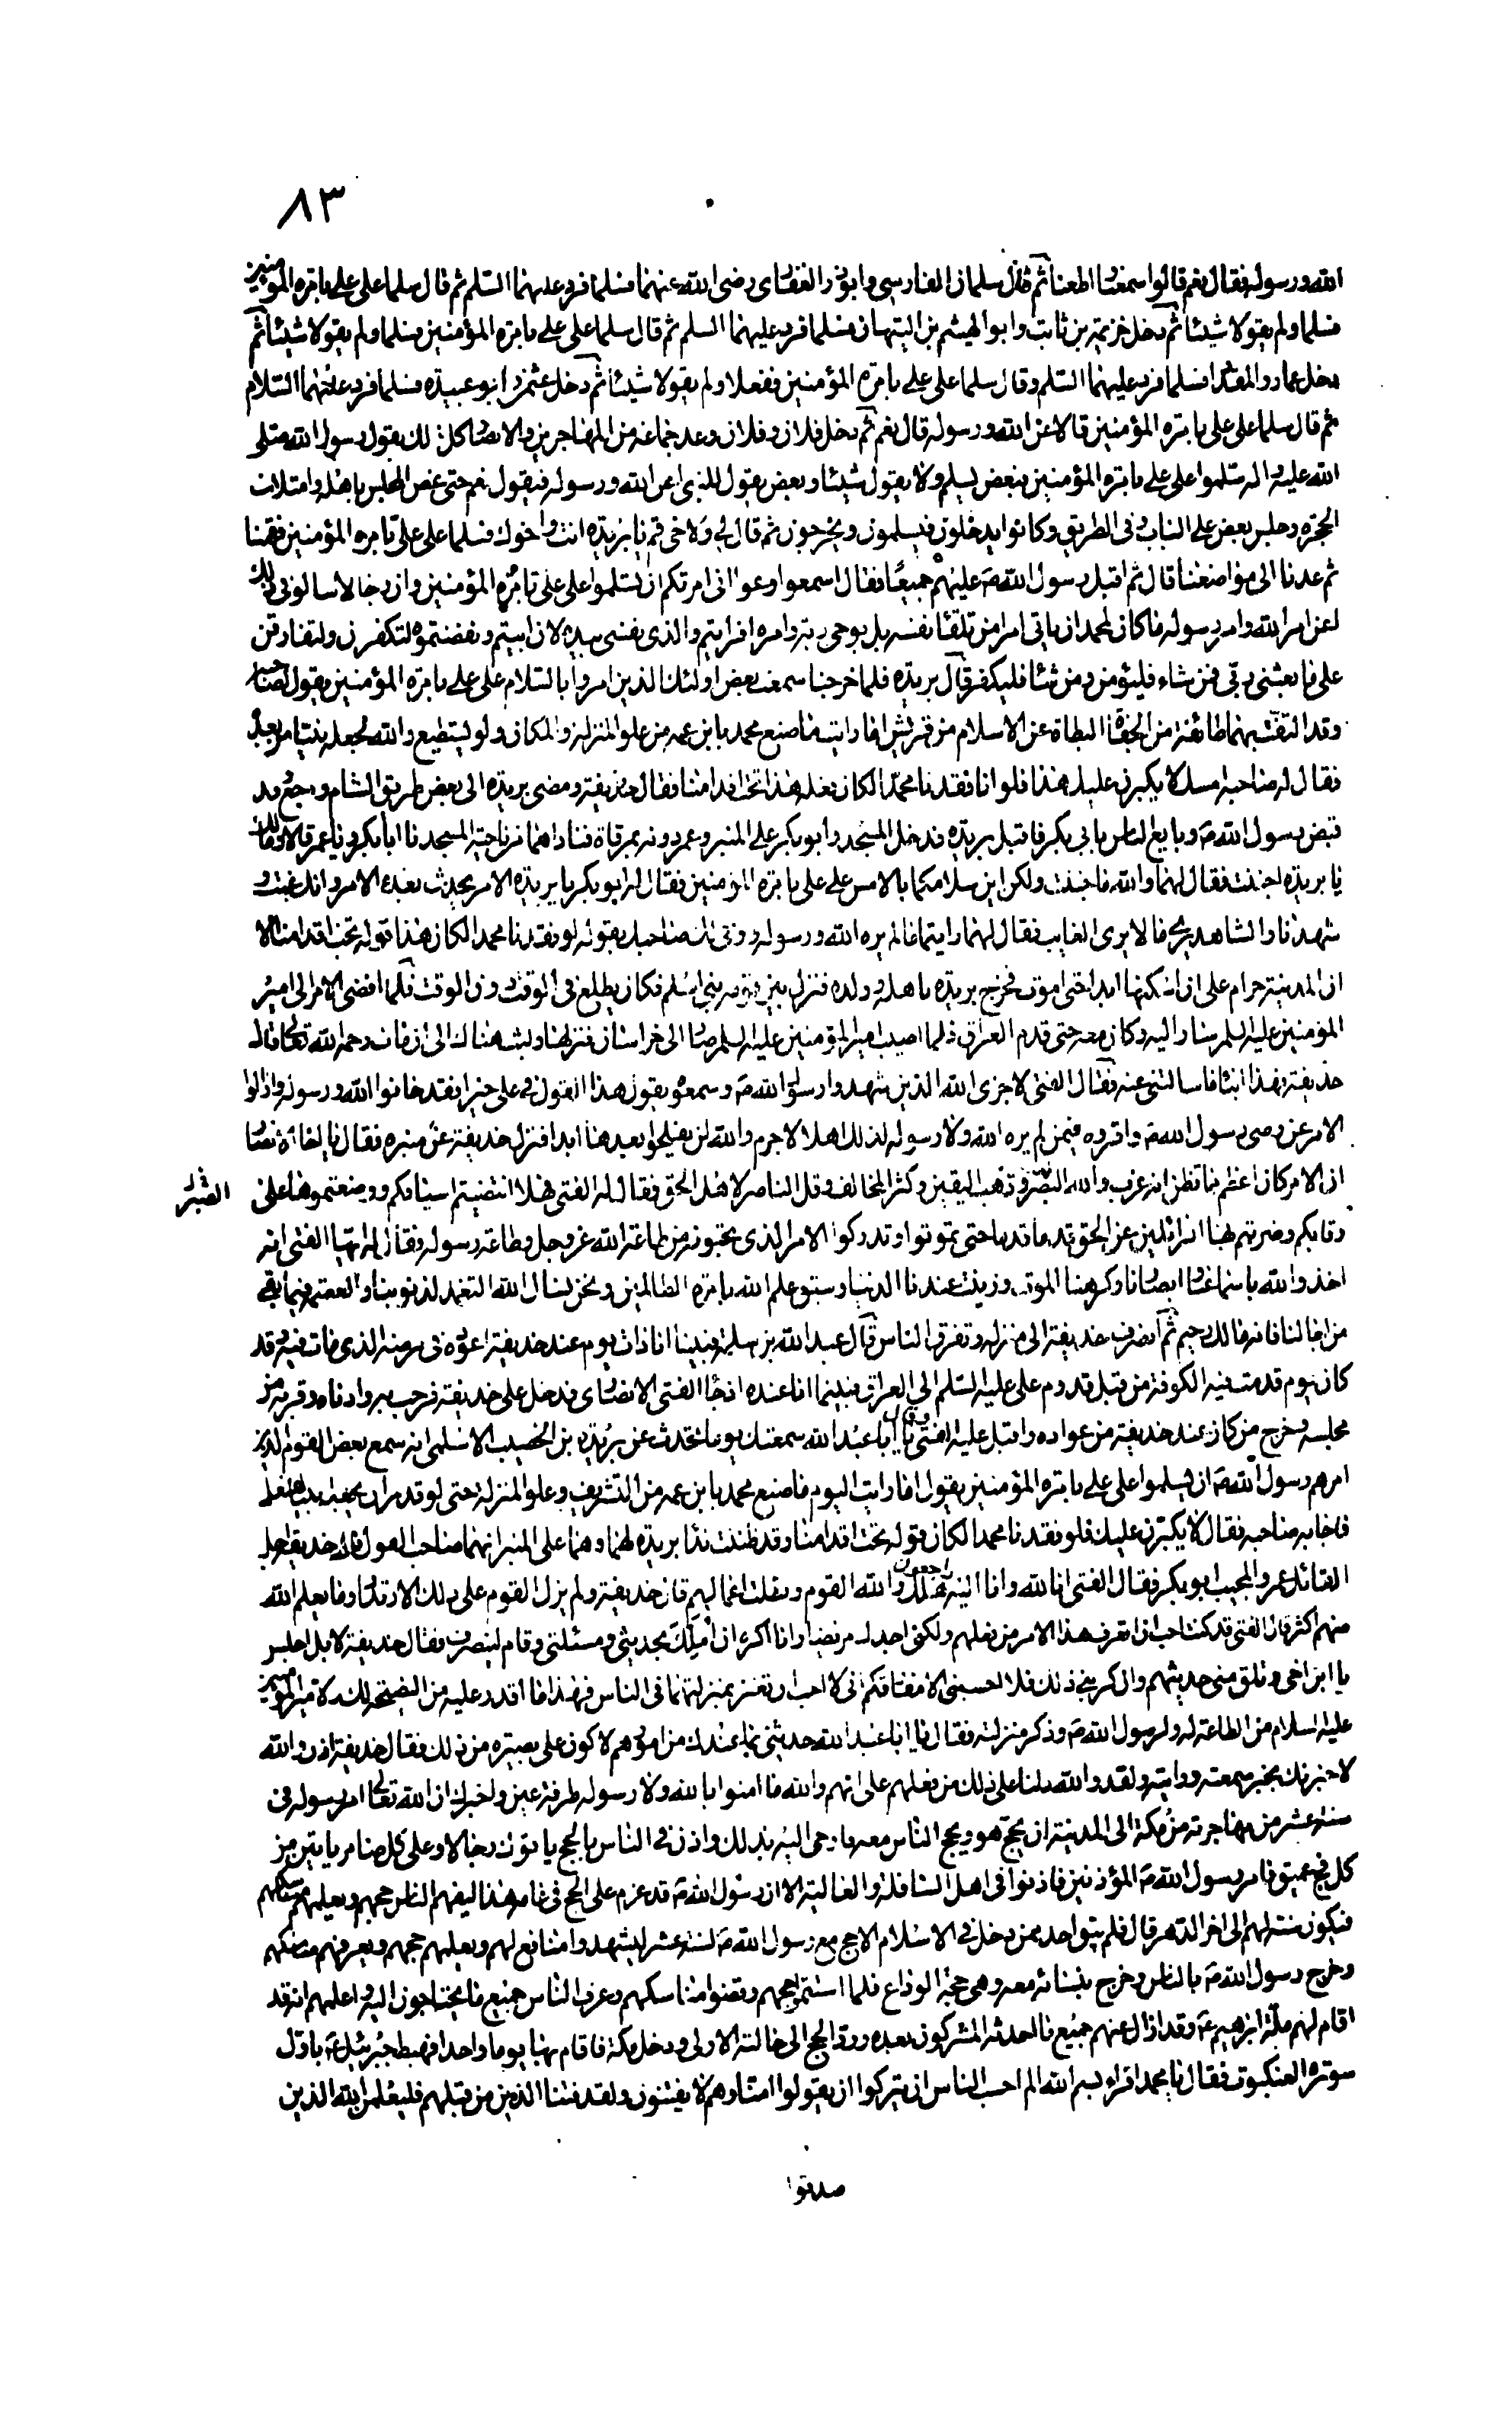 ٨٣
الله ورسوله فقال نعم قالوا سمعنا واطعنا ثم قال سلمان الفارسي وابو ذر الغفارى رضى الله عنهما فسلما فرد عليهما السلم ثم قال سلما على على بامره المؤمنين
فسلما ولم يقولا شيئا ثم دخل خزيمة بن ثابت وابو الهيثم بن التيهان فسلما فرد عليهما السلم ثم قال سلما على على بامره المؤمنين فسلما ولم يقولا شيئا ثم
دخل عمار والمقداد فسلما فرد عليهما السلم وقال سلما على على بامره المؤمنين ففعلا ولم يقولا شيئا ثم دخل عثمن وابو عبيده فسلما فرد عليهما السلام
ثم قال سلما على على بامره المؤمنين قالا عن الله ورسوله قال نعم ثم دخل فلان وفلان وعد جماعه من المهاجرين والانصار كل ذلك يقول رسول الله صلى
الله عليه اله سلموا على على بامره المؤمنين فبعض يسلم ولا يقول شيئا وبعض يقول للنبى اعن الله ورسوله فيقول نعم حتى غص المجلس باهله وامتلات
الحجره وجلس بعض على الباب وفى الطريق وكانوا يدخلون فيسلمون ويخرجون ثم قال لى ولاخى قم يا بريده انت واخوك فسلما على على بامره المؤمنين فقمنا
ثم عدنا الى مواضعنا قال ثم اقبل رسول الله ص عليهم جميعا فقال اسمعوا وعوا انى امرتكم ان تسلموا على على بامره المؤمنين وان رجالا سالونى ذلك
اعن امر الله وامر رسوله ما كان لمحمد ان ياتى امرا من تلقا نفسه بل بوحى ربه وامره افرايتم والذى نفسى بيده لان ابيتم ونقضتموه لتكفرن ولتفارقن
على ما بعثنى ربى فمن شاء فليؤمن ومن شاء فليكفر قال بريده فلما خرجنا سمعت بعض اولئك الذين امروا بالسلام على على بامره المؤمنين يقول لصاحبه
وقد التفت بهما طائفة من الجفاة البطاة عن الاسلام من قريش اما رايت ما صنع محمد بابن عمه من علو المنزله والمكان ولو يستطيع والله لجعله نبيا من بعده
فقال له صاحبه امسك لا يكبرن عليك هذا فلو انا فقدنا محمدا لكان فعله هذا تحت اقدامنا فقال حذيفة ومضى بريده الى بعض طريق الشام ورجع وقد
قبض رسول الله ص وبايع الناس بابى بكر فاقبل بريده فدخل المسجد وابو بكر على المنبر وعمر دونه بمرقاة فناداهما من ناحية المسجد يا ابا بكر ويا عمر قالا ومالك
يا بريده اجننت فقال لهما والله ما جننت ولكن اين سلامكما بالامس على على بامره المؤمنين فقال له ابو بكر يا بريده الامر يحدث بعده الامر وانك غبت و
شهدنا والشاهد يرى ما لا يرى الغايب فقال لهما رايتما ما لم يره الله ورسوله ووفى لك صاحبك بقوله لو فقدنا محمدا لكان هذا قوله تحت اقدامنا الا
ان المدينة حرام على ان اسكنها ابدا حتى اموت فخرج بريده باهله وولده فنزل بين قومه بنى اسلم فكان يطلع فى الوقت دون الوقت فلما افضى الامر الى امير
المؤمنين عليه السلم سار اليه وكان معه حتى قدم العراق فلما اصيب امير المؤمنين عليه السلم صار الى خراسان فنزلها ولبث هناك الى ان مات رحمه الله تعالى قال
حذيفة فهذا انباء ما سالتنى عنه فقال الفتى لا جزى الله الذين شهدوا رسول الله ص وسمعوه يقول هذا القول فى على خيرا فقد خانوا الله ورسوله وازالوا
الامر عن وصى رسول الله ص واقروه فيمن لم يره الله ولا رسوله لذلك اهلا لا جرم والله لن يفلحوا بعدها ابدا فنزل حذيفة عن منبره فقال يا اخا الانصار
ان الامر كان اعظم مما تظن انه عزب والله البصر وذهب اليقين وكثر المخالف وقل الناصر لاهل الحق فقال له الفتى فهلا انتضيتم اسيافكم ووضعتموها على
رقابكم وضربتم بها الزائلين عن الحق قدما قدما حتى تموتوا او تدركوا الامر الذى تحبونه من طاعة الله عز وجل وطاعة رسوله فقال له ايها الفتى انه
اخذ والله باسماعنا وابصارنا وكرهنا الموت وزينت عندنا الدنيا وسبق علم الله بامره الظالمين ونحن نسال الله التغمد لذنوبنا والعصمة فيما بقى
من اجالنا فانه مالك رحيم ثم انصرف حذيفة الى منزله وتفرق الناس قال عبد الله بن سلمة فبينا انا ذات يوم عند حذيفة اعوده فى مرضه الذى مات فيه وقد
كان يوم قدمت فيه الكوفة من قبل قدوم على عليه السلم الى العراق فبينما انا عنده اذ جاء الفتى الانصارى فدخل على حذيفة فرحب به وادناه وقربه من
مجلسه وخرج من كان عند حذيفة من عواده واقبل عليه الفتى وقال يا ابا عبد الله سمعتك يوما تحدث عن بريده بن الخصيب الاسلمى انه سمع بعض القوم الذين
امرهم رسول الله ص ان يسلموا على على بامره المؤمنين يقول اما رايت اليوم ما صنع محمد بابن عمه من التشريف وعلو المنزله حتى لو قدر ان يجعله نبيا لفعل
فاجابه صاحبه فقال لا يكبرن عليك فلو فقدنا محمدا لكان قوله تحت اقدامنا وقد ظننت نداء بريده لهما وهما على المنبر انهما صاحبا القول قال حذيفة اجل
القائل عمر والمجيب ابو بكر فقال الفتى انا لله وانا اليه راجعون هلك والله القوم وبطلت اعمالهم قال حذيفة ولم يزل القوم على ذلك الارتداد وما يعلم الله
منهم اكثر قال الفتى قد كنت احب ان اتعرف هذا الامر من فعلهم ولكنى اجدك مريضا وانا اكره ان املك بحديثى ومسئلتى وقام لينصرف فقال حذيفة لا بل اجلس
يا ابن اخى وتلق منى حديثهم وان كربنى ذلك فلا احسبنى الا مفارقكم انى لا احب ان تغتر بمنزلتهما فى الناس فهذا ما اقدر عليه من النصيحة لك ولامير المؤمنين
عليه السلام من الطاعة له ولرسول الله ص وذكر منزلته فقال يا ابا عبد الله حدثنى بما عندك من امورهم لاكون على بصيره من ذلك فقال حذيفة اذن والله
لاخبرنك بخبر سمعته ورايته ولقد والله دلنا على ذلك من فعلهم على انهم والله ما امنوا بالله ولا رسوله طرفة عين واخبرك ان الله تعالى امر رسوله فى
سنة عشر من مهاجرته من مكة الى المدينة ان يحج هو ويحج الناس معه فاوحى اليه بذلك واذن فى الناس بالحج ياتوك رجالا وعلى كل ضامر ياتين من
كل فج عميق فامر رسول الله ص المؤذنين فاذنوا فى اهل السافلة والعالية الا ان رسول الله ص قد عزم على الحج فى عامه هذا ليفهم الناس حجهم ويعلمهم مناسكهم
فيكون سنة لهم الى اخر الدهر قال فلم يبق احد ممن دخل فى الاسلام الا حج مع رسول الله ص لسنة عشر ليشهدوا منافع لهم ويعلمهم حجهم ويعرفهم مناسكهم
وخرج رسول الله ص بالناس وخرج بنسائه معه وهى حجة الوداع فلما استتم حجهم وقضوا مناسكهم وعرف الناس جميع ما يحتاجون اليه واعلمهم انه قد
اقام لهم ملة ابرهيم ع وقد ازال عنهم جميع ما احدثه المشركون بعده ورد الحج الى حالته الاولى ودخل مكة فاقام بها يوما واحدا فهبط جبرئيل ع باول
سوره العنكبوت فقال يا محمد اقراء بسم الله الم احسب الناس ان يتركوا ان يقولوا امنا وهم لا يفتنون ولقد فتنا الذين من قبلهم فليعلمن الله الذين
صدقوا